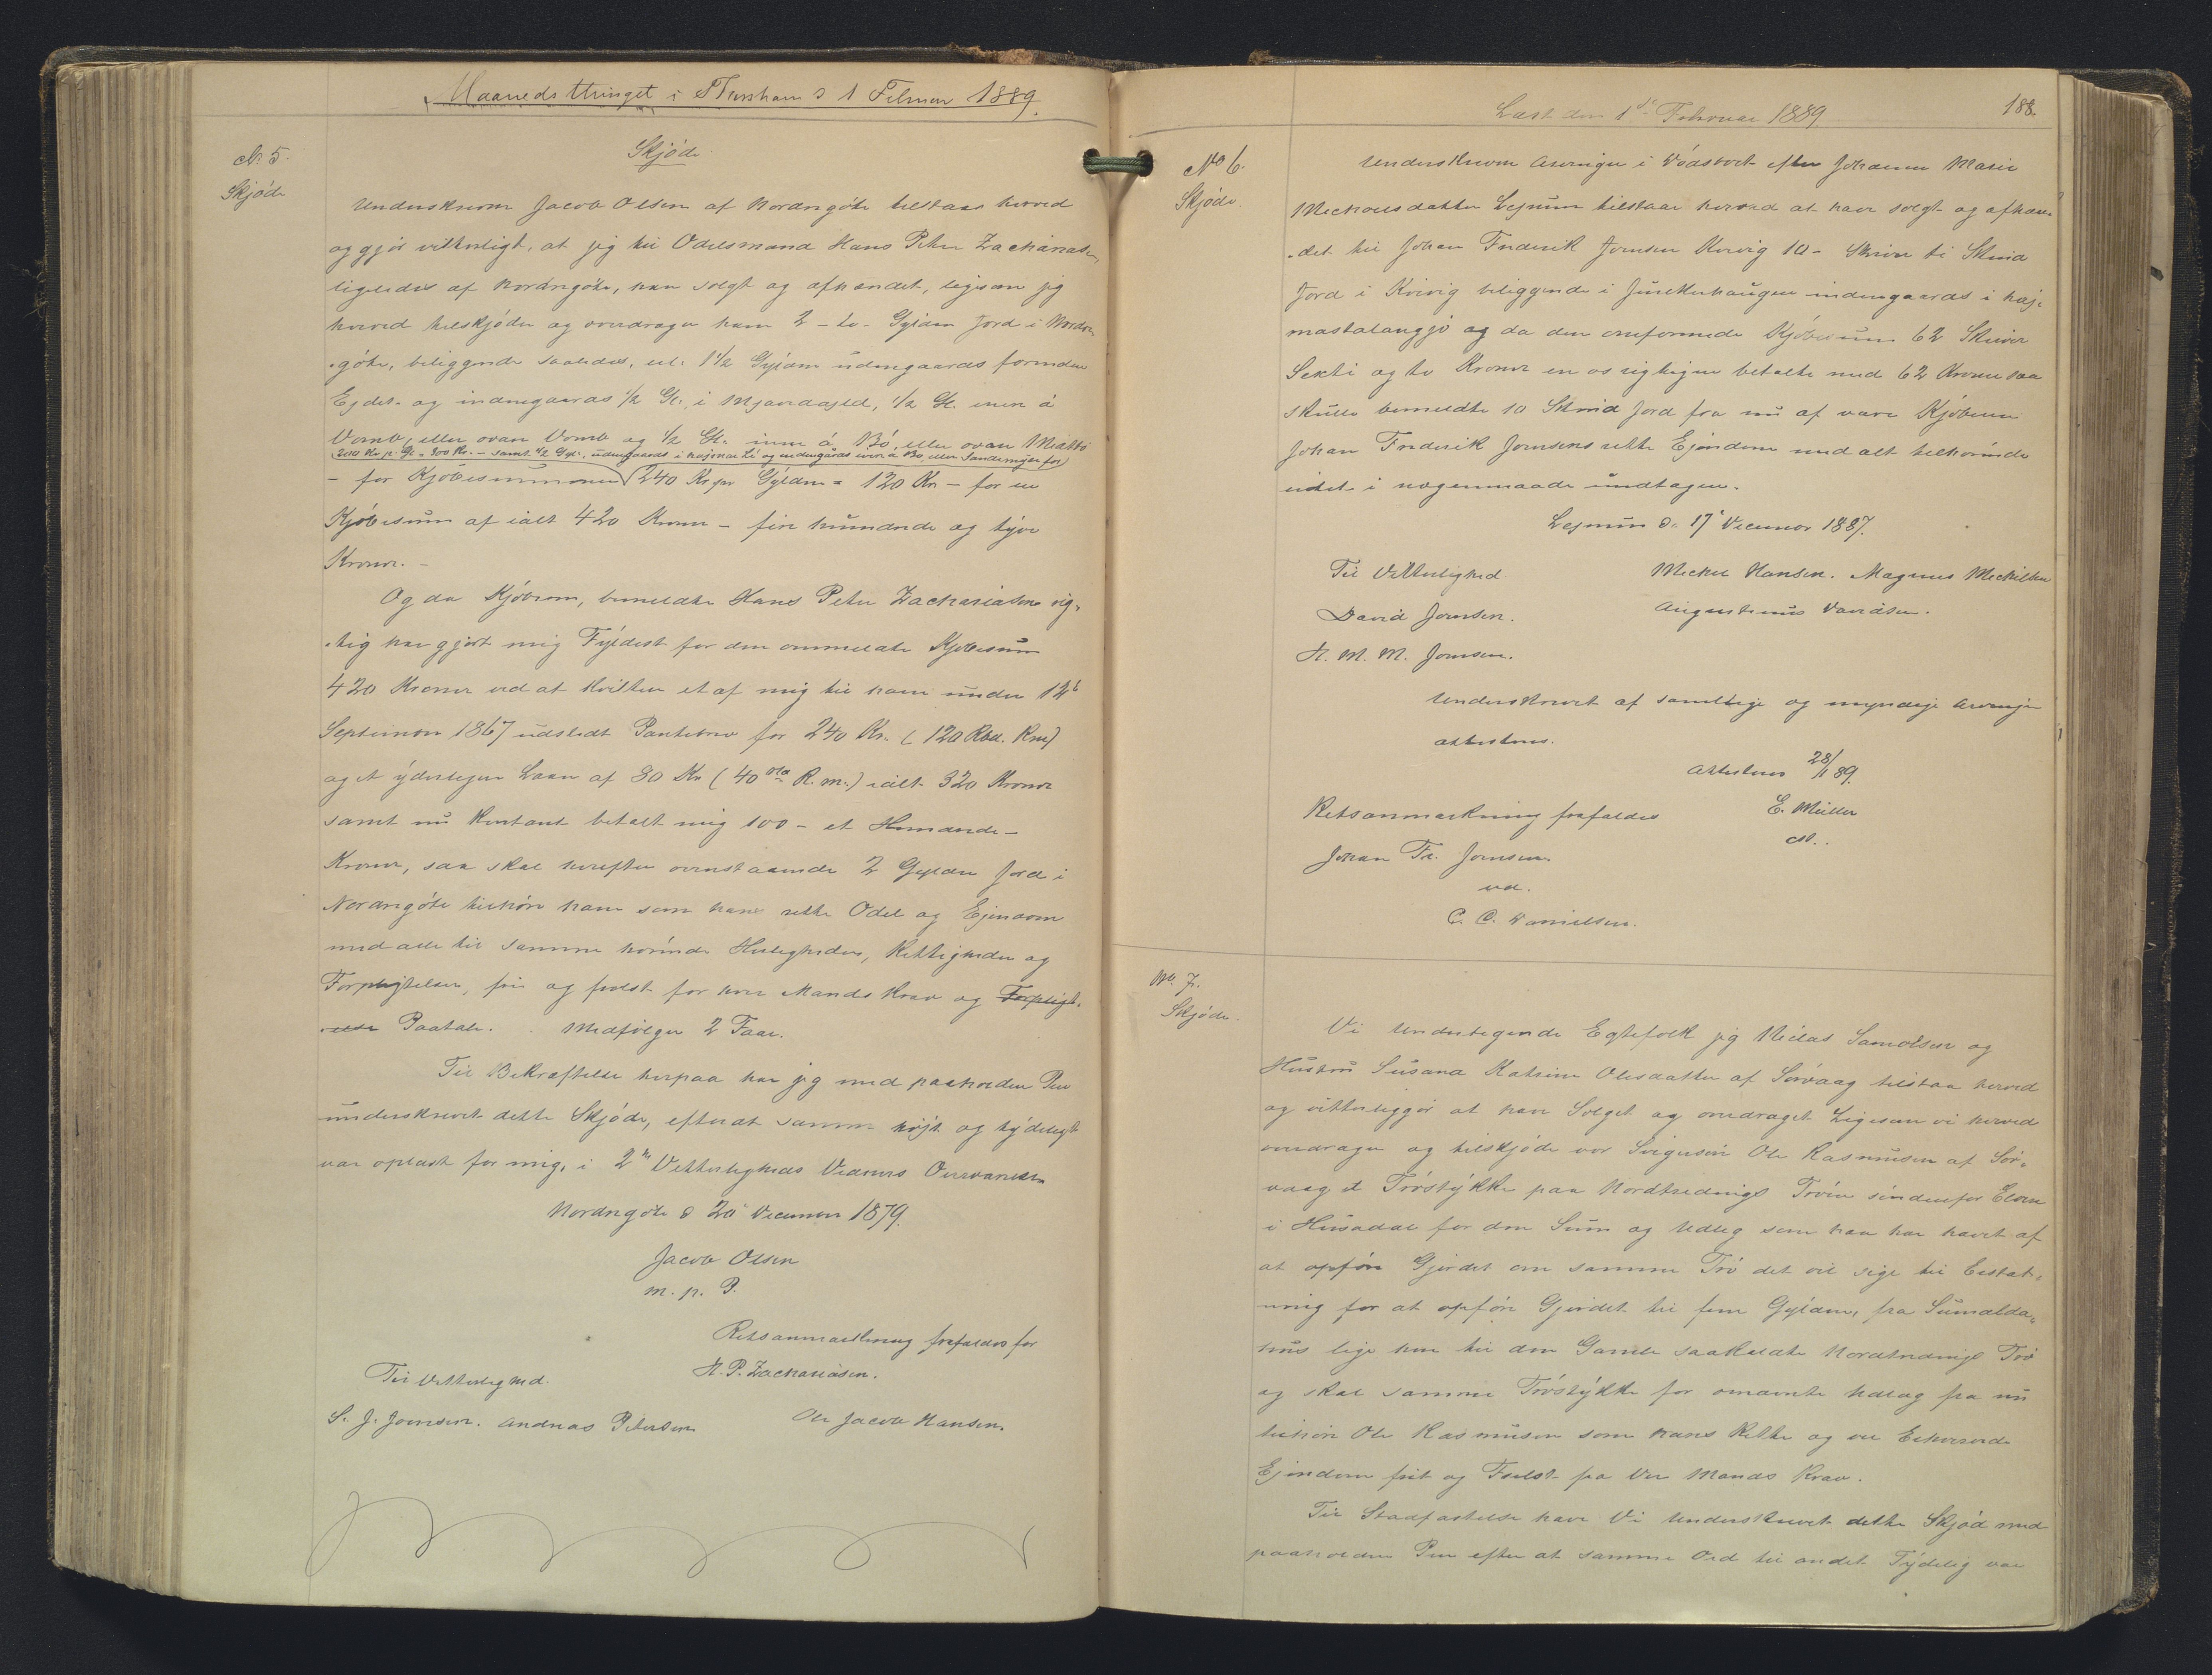 Maanedsthinget i Thorshavn d 1 Februar 1889.
No 5.
Skjøde
Skjøde
Underskrevne Jacob Olsen af Nordregøte tilstaar herved
og gjør vitterligt, at jeg til Odelsmand Hans Peter Zachariasen,
ligeledes af Nordregøte, har solgt og afhændet, ligesom jeg
herved tilskjøder og overdrager ham 2 - to - Gylden Jord i Nordre-
gøte, beliggende saaledes, nl. 1 1/2 Gylden udengaards forinden
Ejdet og indengaards 1/2 Gl. i Mjavagajled, 1/2 Gl. inen á
Vomb, eller ovan Vomb og 1/2 Gl. inn á Bö, eller ovan
200 Kr. p. Gl = 300 Kr. - samt 1/2 Gyl. udengaards i og indengaards á Bø eller for
- for Kjøbesummen 240 Kr pr Gylden = 120 Kr - for en
Kjøbesum af ialt 420 Kroner - fire hundrede og tyve
Kroner. -
Og da Kjøberen, bemeldte Hans Peter Zachariasen rig-
tig har gjort mig Fyldest for den ommeldte Kjøbesum
420 Kroner ved at kvittere et af mig til ham under 12t
September 1867 udstedt Pantebrev for 240 Kr. (120 Rbd. Rm)
og et yderligere Laan af 80 Kr (40 Rd R.m.) ialt 320 Kroner
samt nu kontant betalt mig 100 - et Hundrede -
Kroner, saa skal herefter ovenstaaende 2 Gylden Jord i
Nordregøte tilhøre ham som hans rette Odel og Ejendom
med alle til samme hørende Herligheder, Rettigheder og
Forpligtelser, fri og frelst for hver Mands Krav og Forpligt-
else Paatale. Medfølger 2 Faar.
Til Bekræftelse herpaa har jeg med paaholden Pen
underskrevet dette Skjøde, efterat samme højt og tydeligt
var oplæst for mig, i 2de Vitterligheds Vidners Overværelse
Nordregøte d 20 December 1879.
Jacob Olsen
m. p. P.
Retsanmærkning frafaldes for
H. P. Zachariasen.
Til Vitterlighed.
S. J. Joensen. Andreas Petersen
Ole Jacob Hansen.
Læst den 1ste Februar 1889
188.
No 6.
Skjøde.
Underskrevne Arvinger i Vödsbort efter Johanna Marie
Michelsdatter Lejnum tilstaar herved at have solgt og afhæn-
det til Johan Frederik Joensen Kvivig 10 - Skriver ti Skind
Jord i Kvivig beliggende i indengaards i
og da den omformede Kjøbesum 62 Skriver
Seksti og to Kroner en os rigtigen betalte med 62 Kroner saa
skulle bemeldte 10 Skind Jord fra nu af være Kjøberen
Johan Frederik Joensens rette Ejendom med alt tilhørende
intet i nogenmaade undtagen.
Lejnum d. 17 December 1887.
Til Vitterlighed
David Joensen.
H. M. M. Joensen.
Michel Hansen. Magnus Michelsen
Augustinus
Underskrevet af samtlige og myndige Arvinger
attesteres.
Attesteres 28/1 89.
E. Müller
cst.
Retsanmærkning frafaldes
Johan Fr. Joensen.
ved.
C. C. Danielsen.
No. 7.
Skjøde.
Vi Undertegnede Egtefolk jeg Niclas Samuelsen og
Hustru Susana Katrine Olesdatter af Sørvaag tilstaa herved
og vitterliggør at have Solget og overdraget Ligesom vi herved
overdrager og tilskjøde vor Svigersøn Ole Rasmusen af Sør-
vaag et Trøstykke paa Nordtrednings Trøin søndenfor Elven
i Husadal for den Sum og Udlæg som han har havt af
at opføre Gjerdet om samme Trø det vil sige til Erstat-
ning for at opføre Gjerdet til fem Gylden, fra
hus lige hen til den Gamle saakaldte Nordtrednings Trø
og skal samme Trøstykke for omnævnte Udlæg fra nu
tilhøre Ole Rasmusen som hans Rette og vel Erhvervede
Ejendom frit og Frelst fra Ver Mands Krav.
Til Stadfæstelse have Vi Underskrevet dette Skjød med
paaholden Pen efter at samme Ord til andet Tydelig var